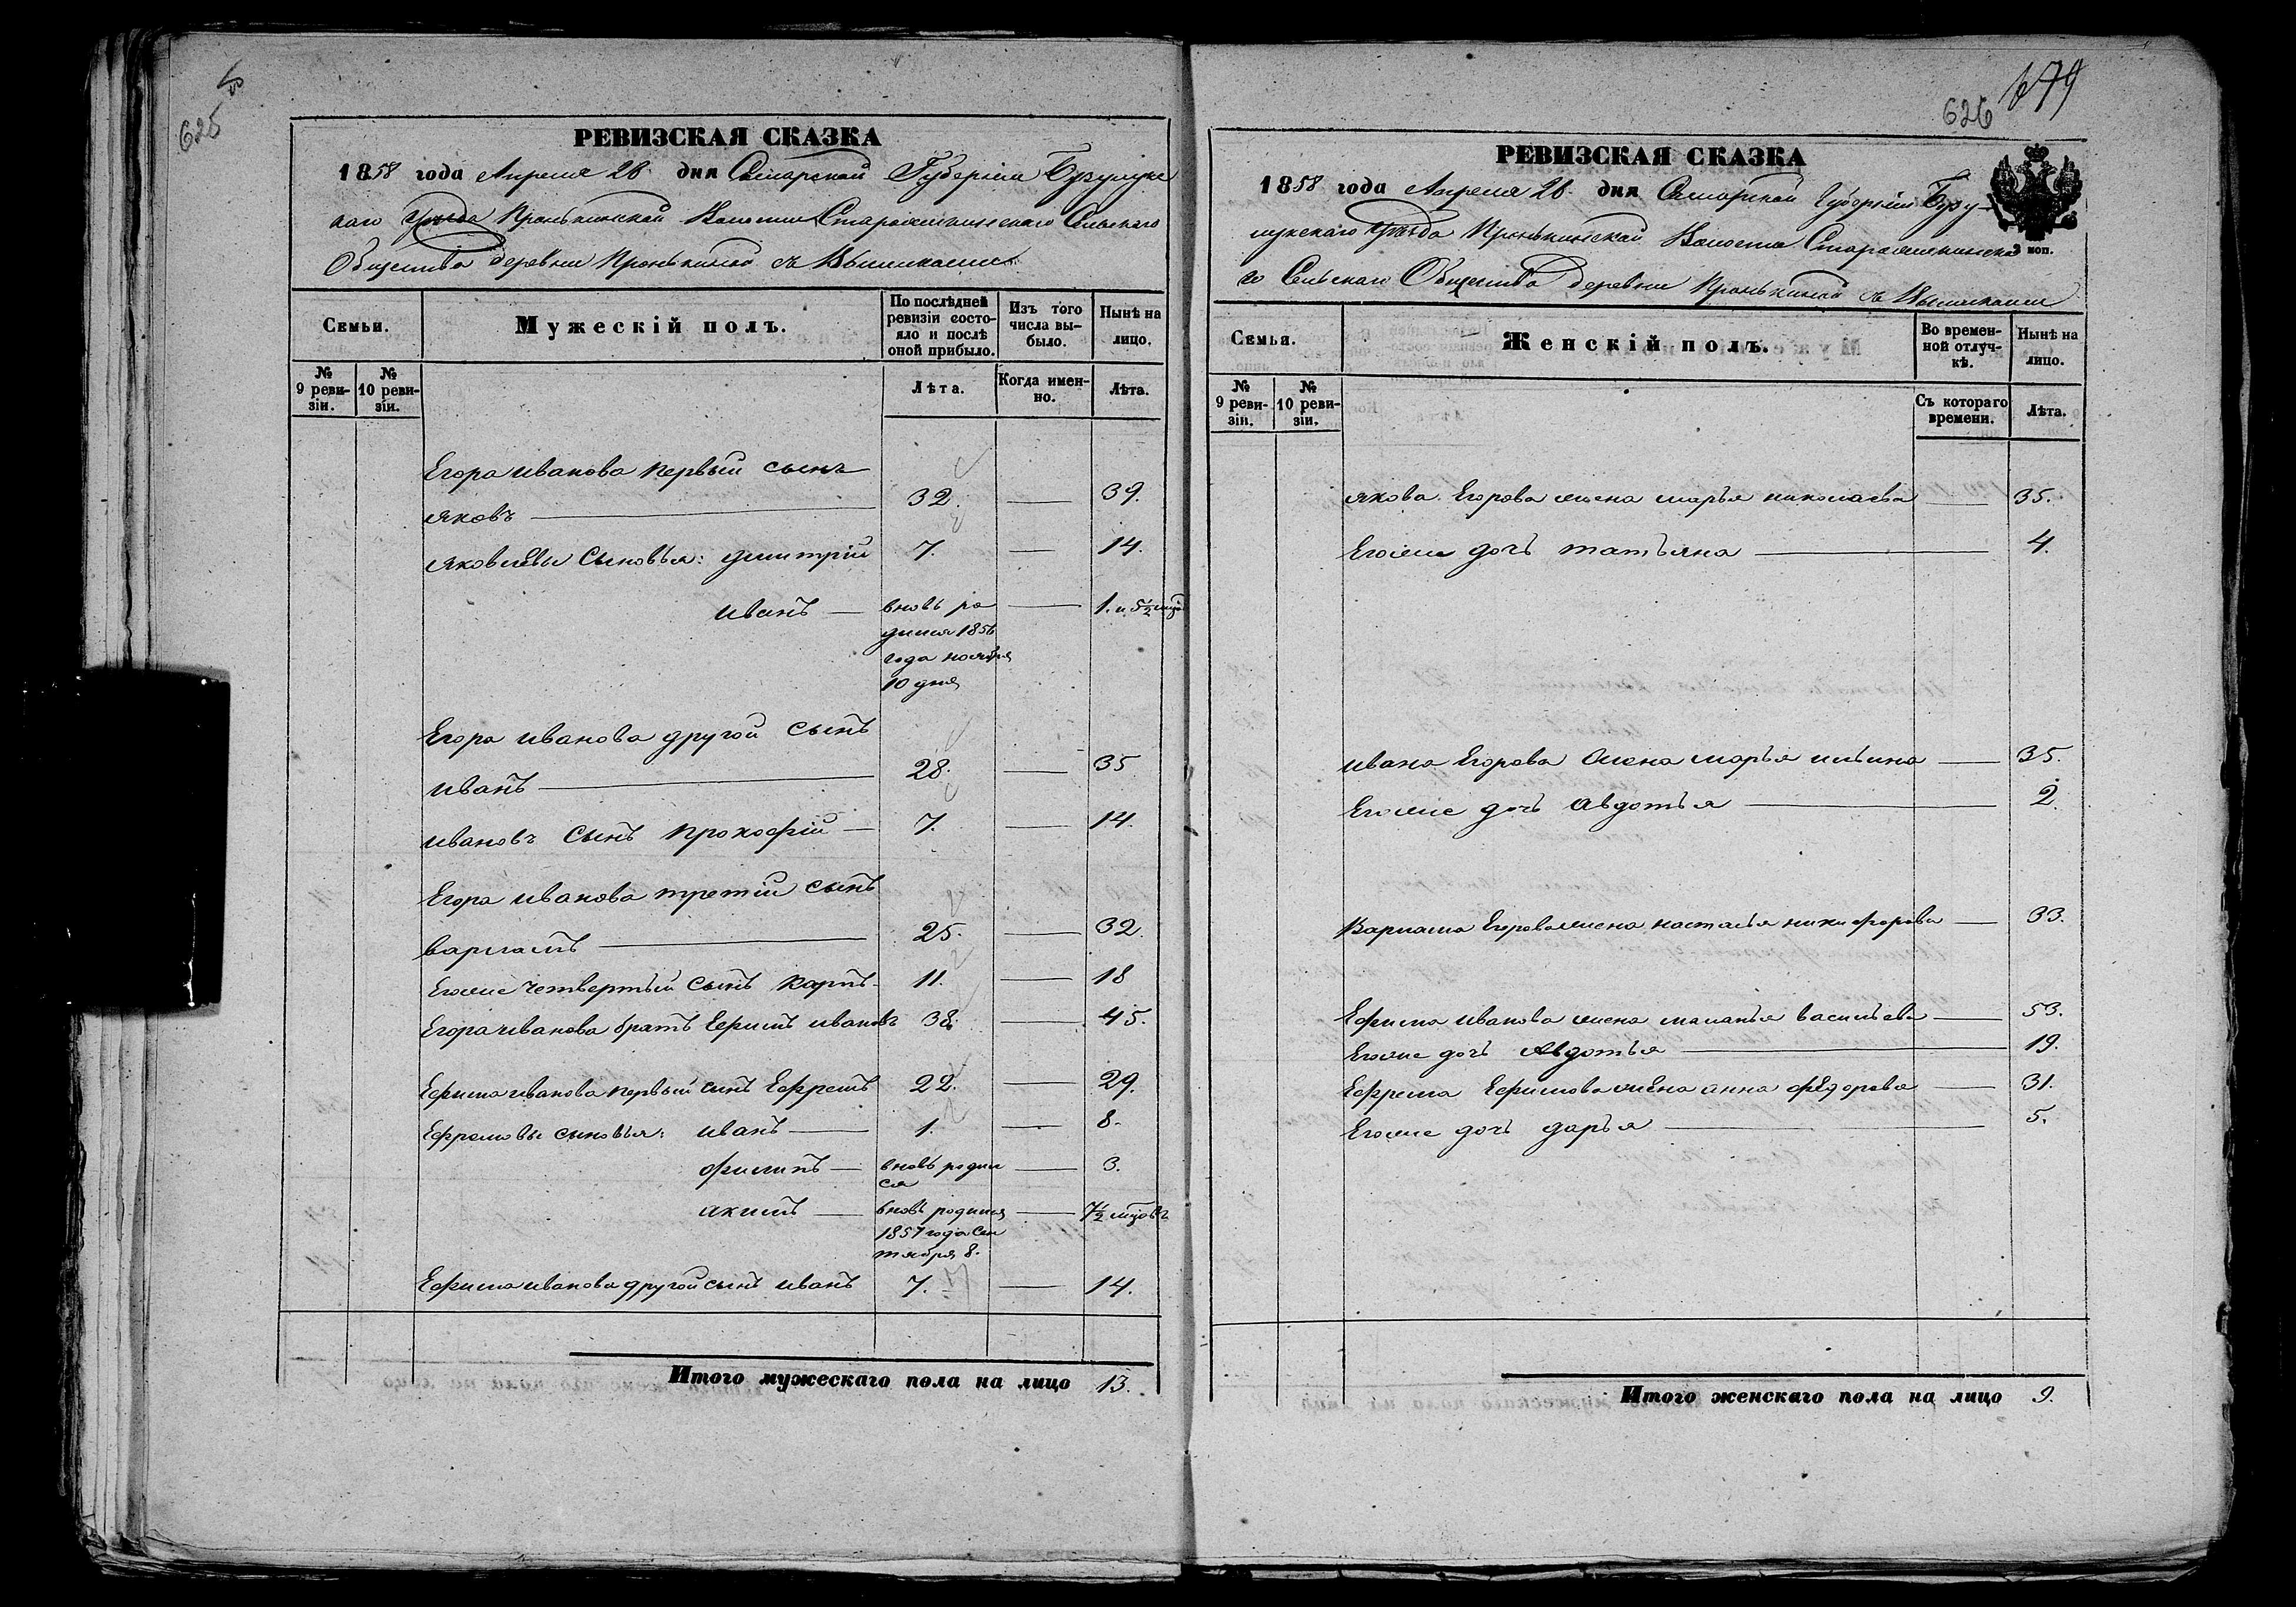 625
РЕВИЗСКАЯ СКАЗКА
1858 года Апреля 28 дня Самарской Губерніи Бузулукс
каго Уѣзда Пронькинской Волости Староякшинскаго Сельскаго
Общества деревни Пронькиной съ
Семьи.
Мужескій полъ.
По послѣдней ревизіи состо-яло и послѣ оной прибыло.
Изъ того числа вы-было.
Нынѣ на лицо.
№ 9 реви-зіи.
№ 10 реви-зіи.
Лѣта.
Когда имен-но.
Лѣта.
Егора иванова первый сынъ
яковъ 32. 39.
яковлевы сыновья: дмитрій 7. 14.
иванъ вновь ро 1. и 5½ мцо
дился 1856
года ноября
10 дня
Егора иванова другой сынъ
иванъ 28. 35
ивановъ сынъ прокофій 7. 14.
Егора иванова третій сынъ
варламъ 25. 32.
Егоже четвертый сынъ карпъ 11. 18
Егора иванова братъ Ефимъ ивановъ 38. 45.
Ефима иванова первый сынъ Ефремъ 22. 29.
Ефремовы сыновья: иванъ 1. 8.
филипъ вновь родил 3.
ся
акимъ вновь родился 7½ мцовъ
1857 года сен
тября 8.
Ефима иванова другой сынъ иванъ 7. 14.
Итого мужескаго пола на лицо 13.
626 679
РЕВИЗСКАЯ СКАЗКА
1858 года Апреля 28. дня Самарской Губерніи Бузу
лукскаго Уѣзда Пронькинской Волости
го Сельскаго Общества деревни Пронькиной съ
3 коп.
Семья.
Женскій полъ.
Во времен-ной отлуч-кѣ.
Нынѣ на лицо.
№ 9 реви-зіи.
№ 10 реви-зіи.
Съ котораго времени.
Лѣта.
якова Егорова жена марья николаева 35.
Егоже дочь татьяна 4.
ивана Егорова жена марья ильина 35.
Егоже дочь авдотья 2.
Варлама Егорова жена настасья никифорова 33.
Ефима иванова жена маланья васильева 53.
Егоже дочь авдотья 19.
Ефрема Ефимова жена анна федорова 31.
Егоже дочь дарья 5.
Итого женскаго пола на лицо 9.